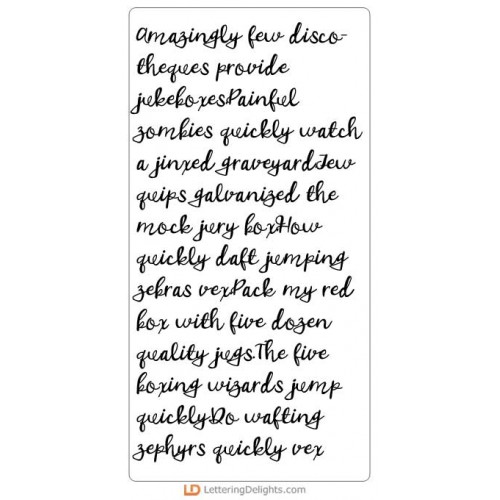 Amazingly few disco-
theques provide
jukeboxes.Painful
zombies quickly watch
a jinxed graveyard.Few
quips galvanized the
mock jury box.How
quickly daft jumping
zebras vex.Pack my red
box with five dozen
quality jugs.The five
boxing wizards jump
quickly.Do wafting
zephyrs quickly vex
LD LetteringDelights.com